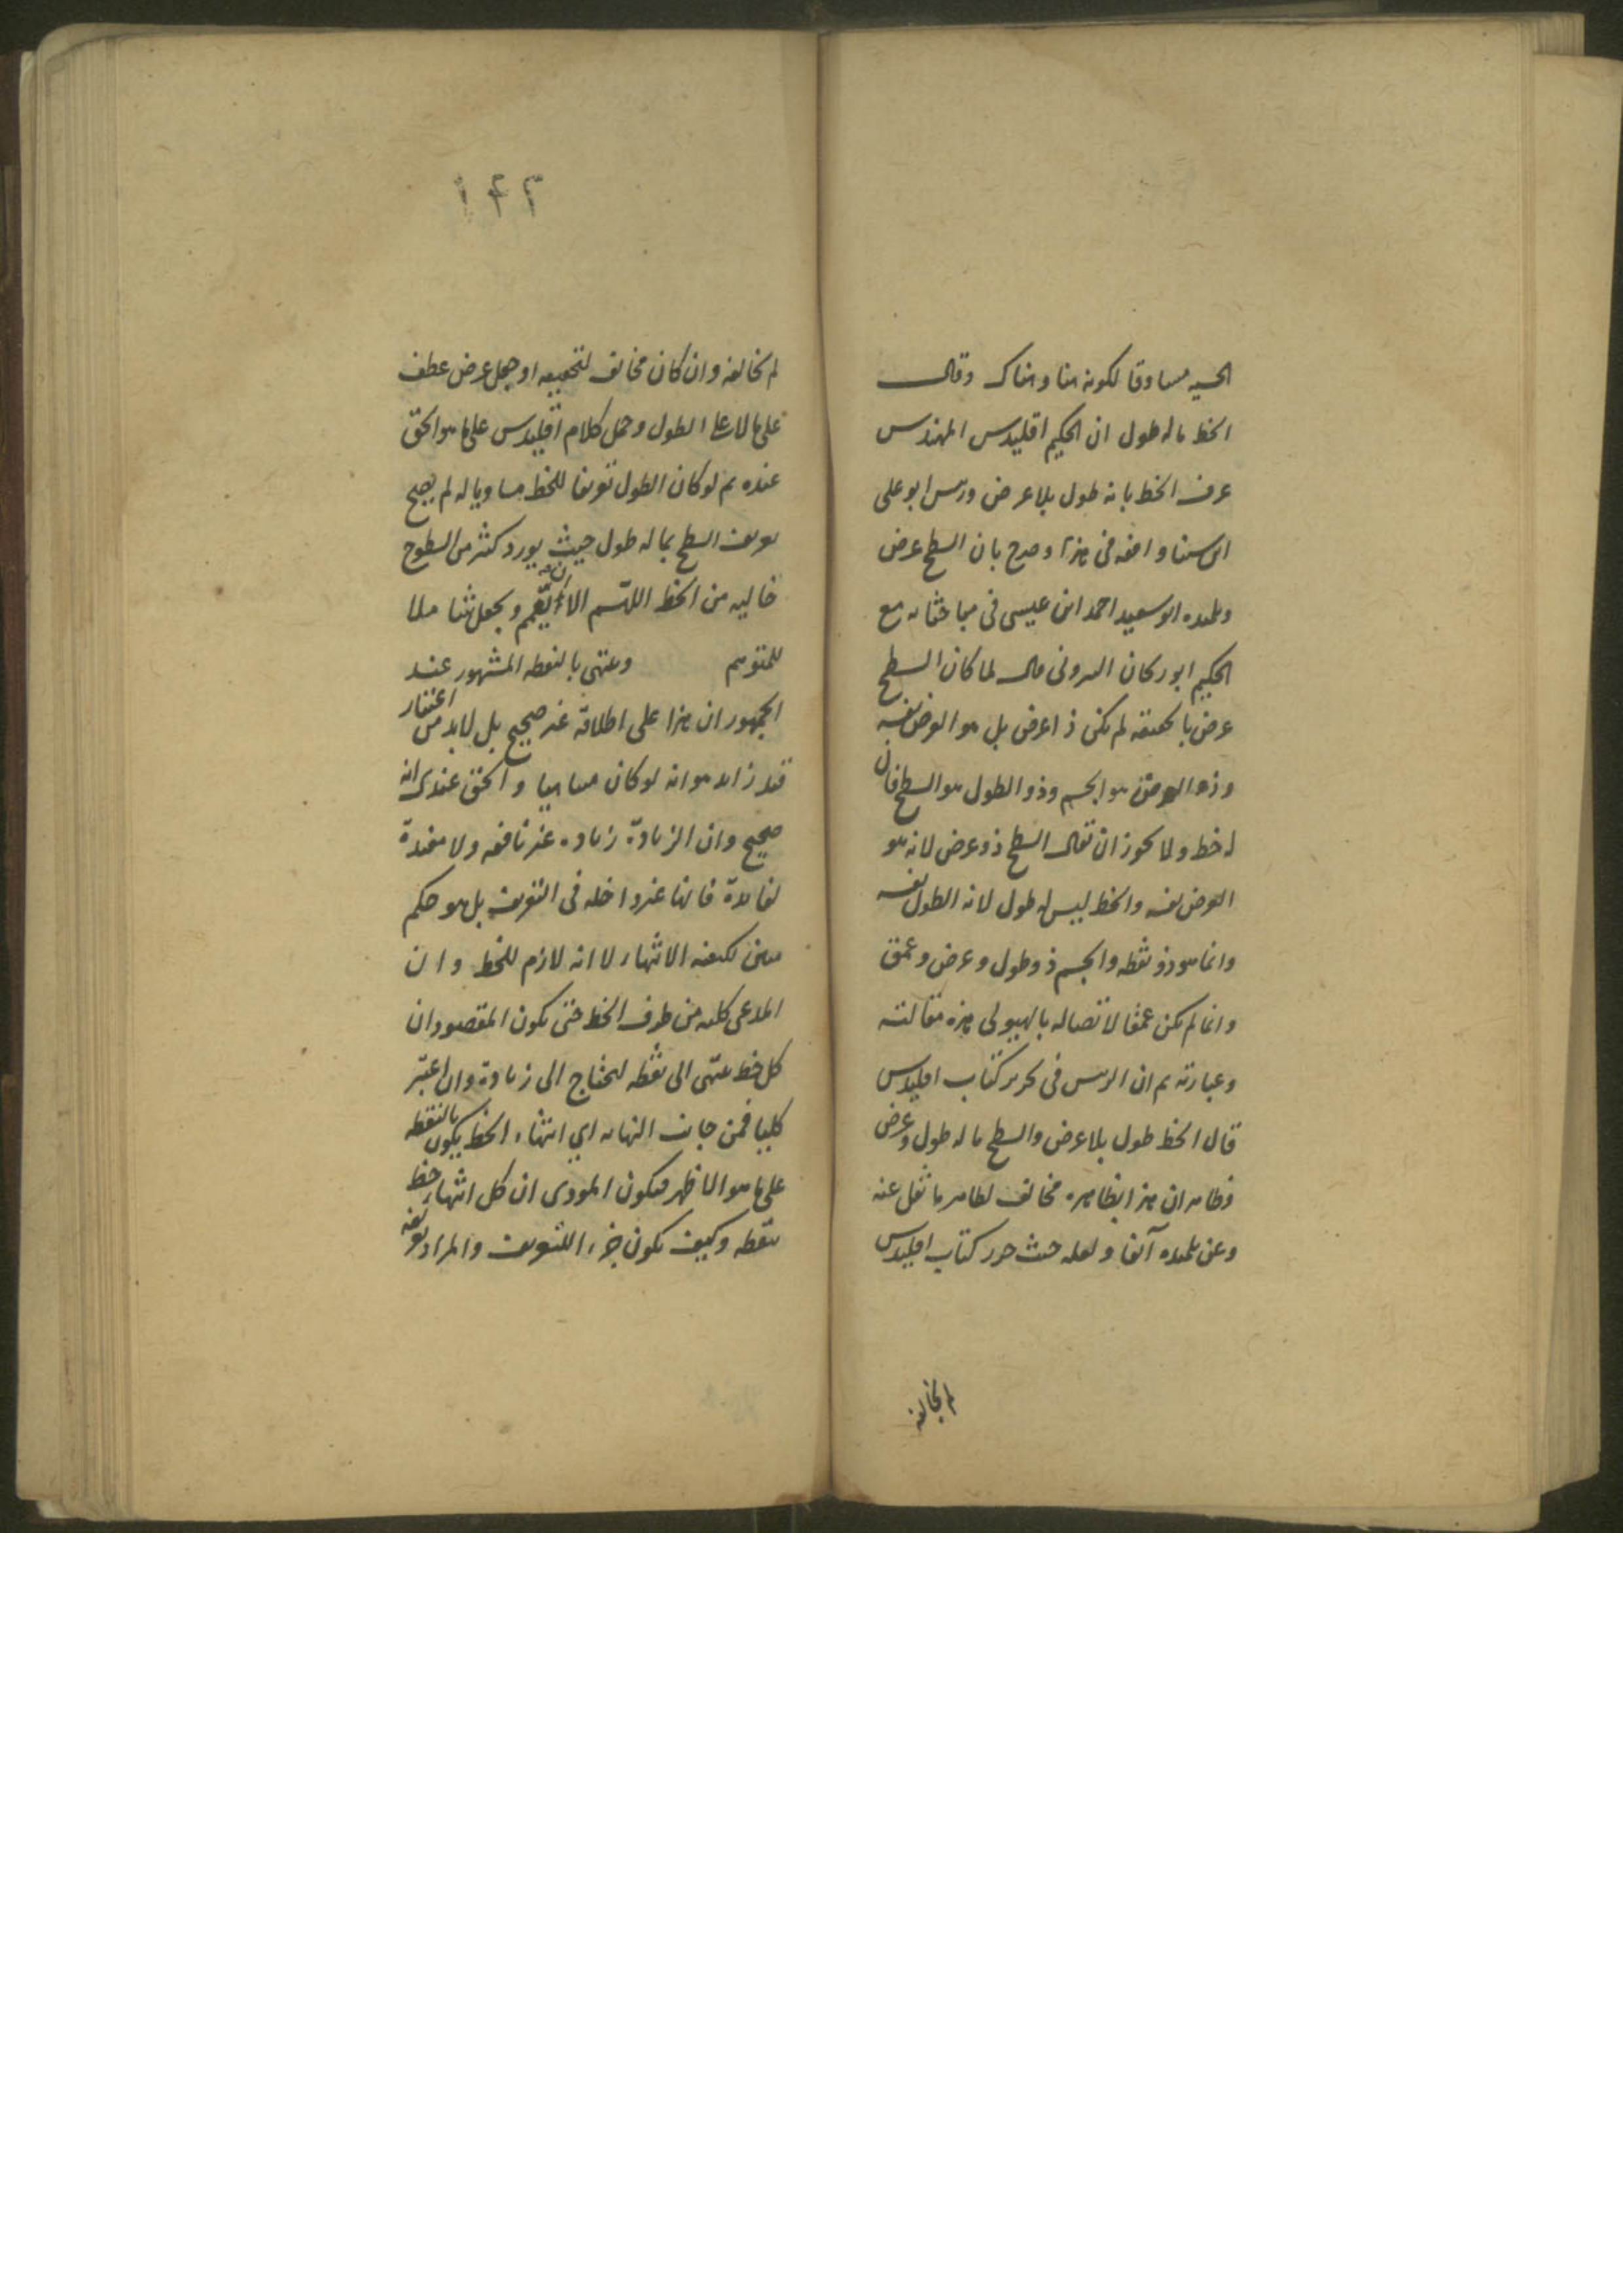 الحسيه مساوقا لكونه هنا وهناك وقال
الخط ماله طول ان الحكيم اقليدس المهندس
عرف الخط بانه طول بلا عرض ورئيس ابو على
ابن سينا وافقه فى هذا وصرح بان السطح عرض
وتلميذه ابو سعيد احمد ابن عيسى فى مباحثاته مع
الحكيم ابو ريحان البيرونى قال لما كان السطح
عرض بالحقيقه لم يكن ذا عرض بل هو العرض نفسه
وذو العرض هو الجسم وذو الطول هو السطح فان
له خط ولا يجوز ان يقال السطح ذو عرض لانه هو
العرض نفسه والخط ليس له طول لانه الطول نفسه
وانما هو ذو نقطه والجسم ذو طول وعرض وعمق
وانما لم يكن عمقا لاتصاله بالهيولى هذه مقالته
وعبارته ثم ان الرئيس فى تحرير كتاب اقليدس
قال الخط طول بلا عرض والسطح ما له طول وعرض
فظاهر ان هذا بظاهره مخالف لظاهر ما نقل عنه
وعن تلميذه آنفا ولعله حيث حرر كتاب اقليدس
لم يخالفه
١٤٢
لم يخالفه وان كان مخالف لتحقيقه او جعل عرض عطف
على بلا لا على الطول وحمل كلام اقليدس على ما هو الحق
عنده ثم لو كان الطول تعريفا للخط مساويا له لم يصح
تعريف السطح بما له طول حيث يورد كثير من السطوح
خاليه من الخط اللهم الا ان يعمم ويجعل شاملا
للمتوهم وينتهى بالنقطه المشهور عند
الجمهور ان هذا على اطلاقه غير صحيح بل لابد من اعتبار
قيد زايد هو انه لو كان متناهيا والحق عندى انه
صحيح وان الزيادة زياده غير نافعه ولا مفيدة
لفايدة فانها غير داخله فى التعريف بل هو حكم
مبين لكيفيه الانتهاء لا انه لازم للخط وان
المدعى كليه من طرف الخط حتى يكون المقصود ان
كل خط ينتهى الى نقطه ليحتاج الى زيادة وان اعتبر
كليا فمن جانب النهايه اي انتهاء الخط يكون بالنقطه
على ما هو الظاهر فيكون المودى ان كل انتهاء خط
بنقطه وكيف يكون جزء للتعريف والمراد تعريفه